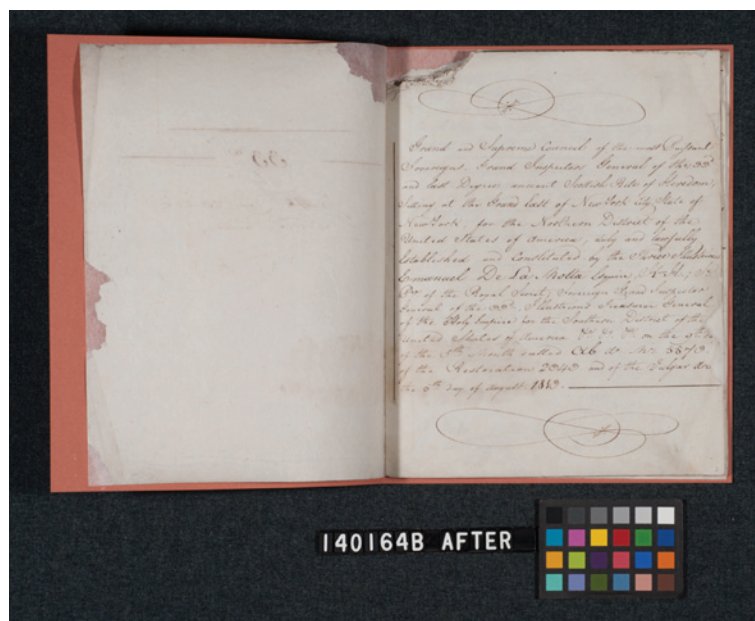 Grand and Supreme Council of the most Puissant
Sovereigns, Grand Inspectors General of the 33d
and last Degree ancient Scottish Rite of Heredom,
sitting at the Grand East of New York City State of
New York, for the Northern District of the
United States of America, duly and lawfully
Established and Constituted by the
Emanuel De La Motta Esquire, K-H,
of the Royal Secret, Sovereign Grand Inspector
General of the 33d, Illustrious Treasurer General
of the Holy Empire for the Southern District of the
United States of America on the
of the 5th Month called Ab
of the Restoration 2343 and of the Vulgar Era
the 5th day of August 1813.
140164B AFTER